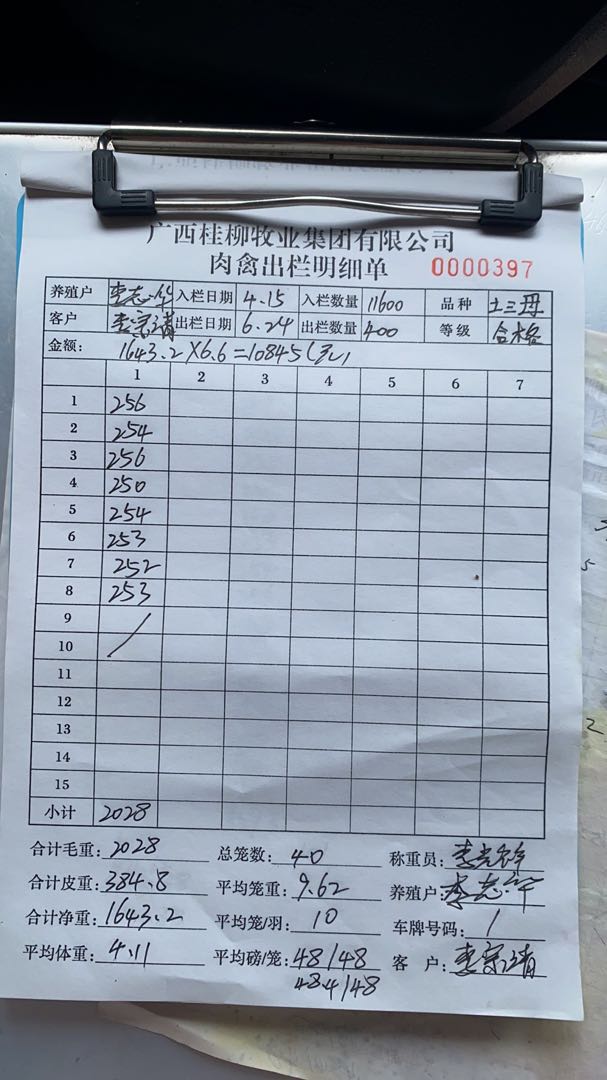 广西桂柳牧业集团有限公司
肉禽出栏明细单 0000397
养殖户 李志华 入栏日期 4.15 入栏数量 11600 品种 土三丹
客户 出栏日期 6.24 出栏数量 400 等级 合格
金额: 1643.2×6.6=10845(元)
1 2 3 4 5 6 7
1 256
2 254
3 256
4 250
5 254
6 253
7 252
8 253
9
10
11
12
13
14
15
小计 2028
合计毛重: 2028 总笼数: 40 称重员:
合计皮重: 384.8 平均笼重: 9.62 养殖户: 李志华
合计净重: 1643.2 平均笼/羽: 10 车牌号码: 1
平均体重: 4.11 平均磅/笼: 48/48 客 户:
48.4/48